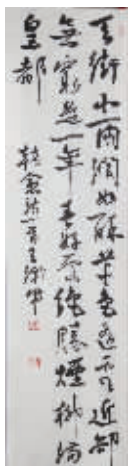 天街小雨潤如酥草色遥看近却
無最是一年春好處絶勝煙柳滿
皇都
韓愈詩一首